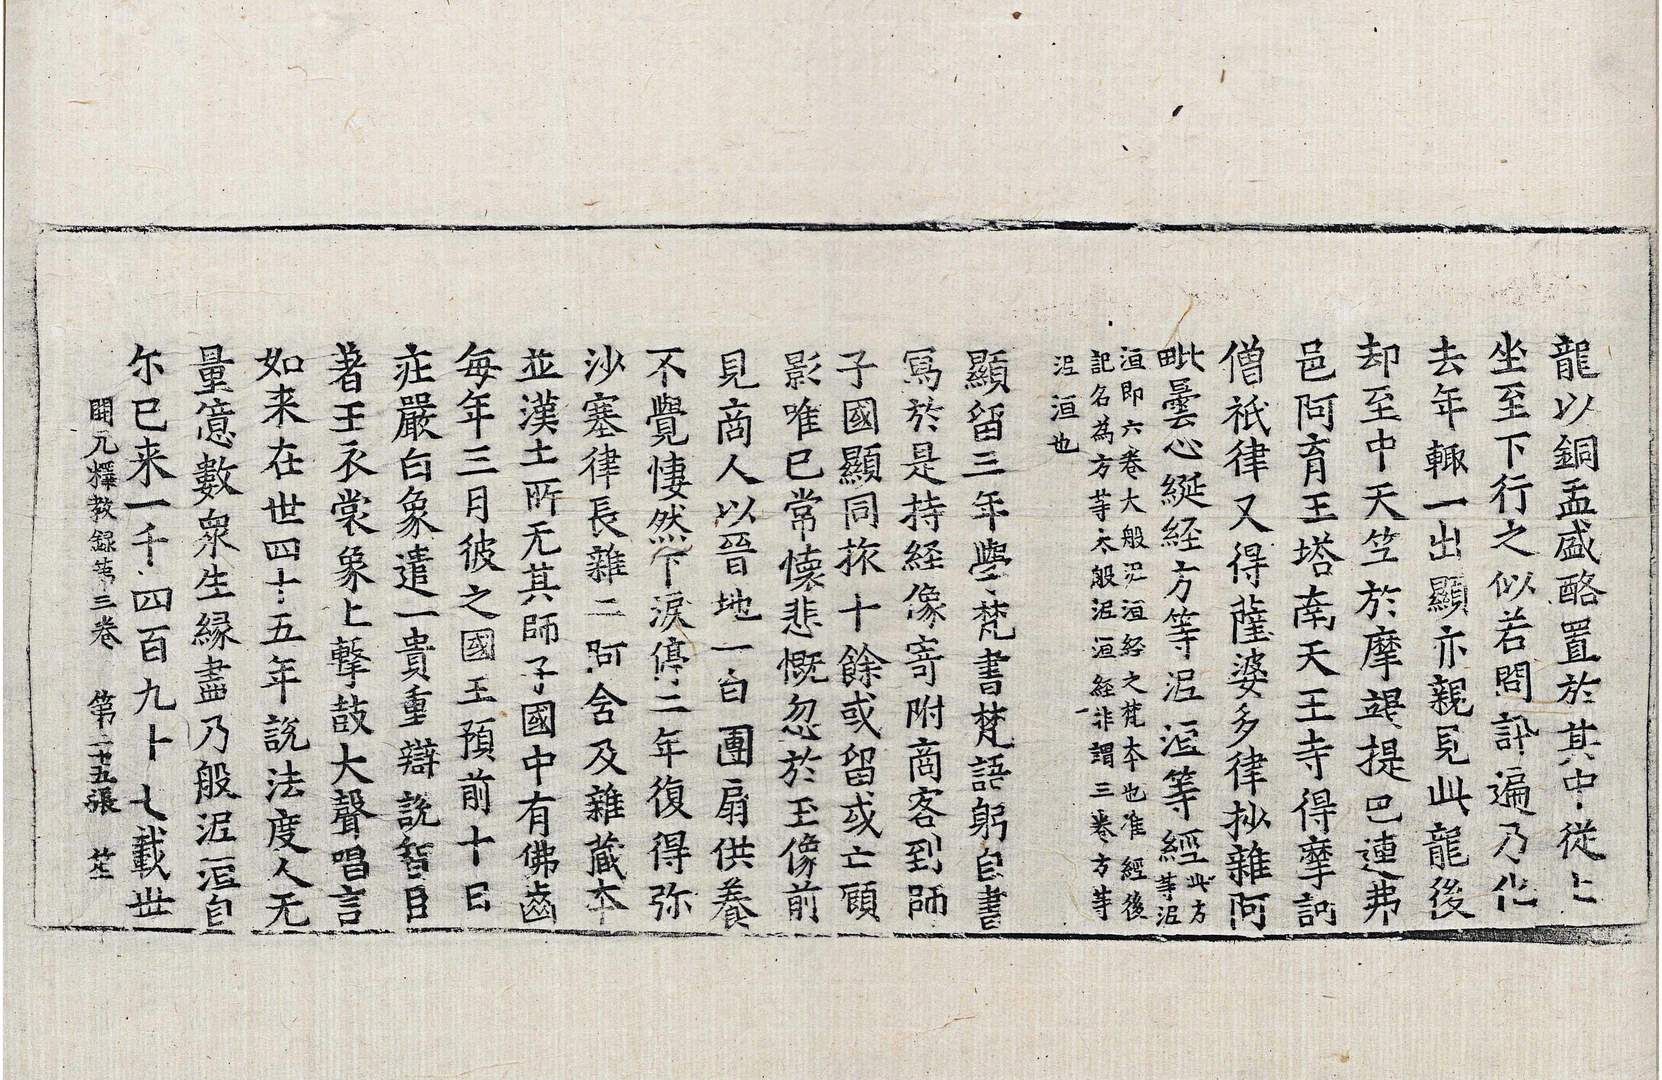 龍以銅盂盛酪置於其中從上
坐至下行之似若問訊遍乃化
去年輙一出顯亦親見此龍後
却至中天竺於摩竭提巴連弗
邑阿育王塔南天王寺得摩訶
僧祇律又得薩婆多律抄雜阿
毗曇心綖経方等泥洹等經此方等泥
洹即六卷大般泥洹経之梵本也准經後
記名為方等大般泥洹経非謂三卷方等
泥洹也
顯留三年學梵書梵語躬自書
寫於是持経像寄附商客到師
子國顯同旅十餘或留或亡顧
影唯已常懷悲慨忽於玉像前
見商人以晉地一白團扇供養
不覺悽然下淚停二年復得弥
沙塞律長雜二阿含及雜藏本
並漢土所无其師子國中有佛齒
每年三月彼之國王預前十日
莊嚴白象遣一貴重辯說智臣
著王衣裳象上擊鼓大聲唱言
如来在世四十五年說法度人无
量億數衆生縁盡乃般泥洹自
尓已来一千四百九十七載世
開元釋教録第三卷　第二十五張　笙